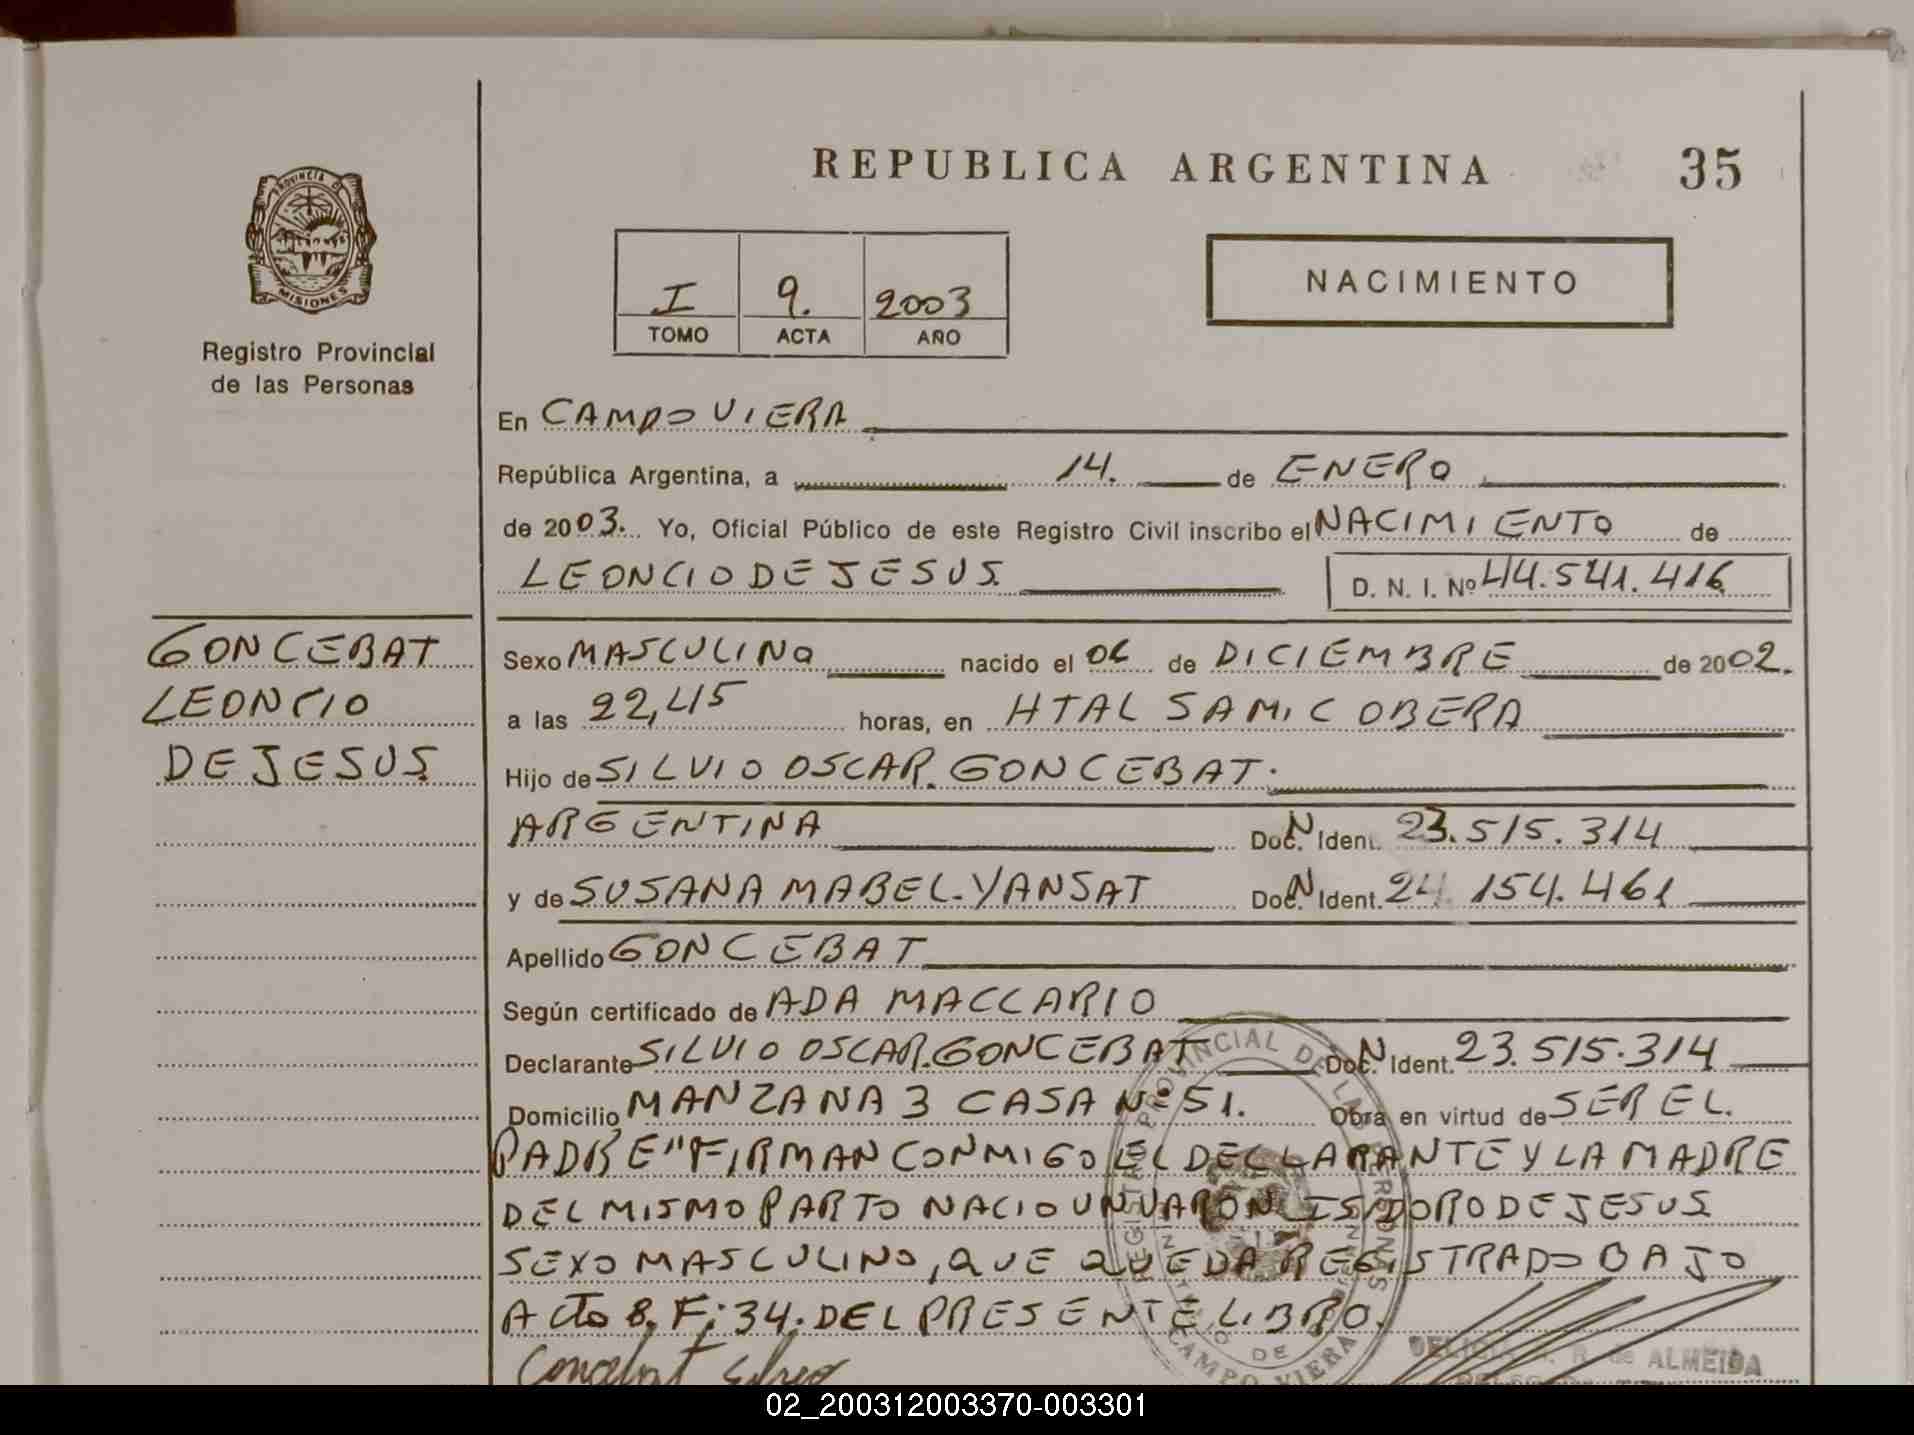 REPUBLICA ARGENTINA 35
PROVINCIA DE
MISIONES
Registro Provincial
de las Personas
I 9. 2003
TOMO ACTA AÑO
NACIMIENTO
En CAMPO VIERA
República Argentina, a 14. de ENERO
de 2003. Yo, Oficial Público de este Registro Civil inscribo el NACIMIENTO de
LEONCIO DE JESUS. D. N. I. Nº 44.541.416
GONCEBAT
LEONCIO
DE JESUS
Sexo MASCULINO nacido el 06 de DICIEMBRE de 2002.
a las 22,45 horas, en HTAL SAMIC OBERA
Hijo de SILVIO OSCAR. GONCEBAT.
ARGENTINA Doc. N Ident. 23.515.314
y de SUSANA MABEL. YANSAT Doc. N Ident. 24.154.461
Apellido GONCEBAT
Según certificado de ADA MACCARIO
Declarante SILVIO OSCAR. GONCEBAT Doc. N Ident. 23.515.314
Domicilio MANZANA 3 CASA Nº 51. Obra en virtud de SER EL.
PADRE" FIRMAN CONMIGO EL DECLARANTE Y LA MADRE
DEL MISMO PARTO NACIO UN VARON ISIDORO DE JESUS
SEXO MASCULINO, QUE QUEDA REGISTRADO BAJO
Acto 8. F: 34. DEL PRESENTE LIBRO.
REGISTRO PROVINCIAL DE LAS PERSONAS
CAMPO VIERA
DELICIA A. R. de ALMEIDA
02_200312003370-003301